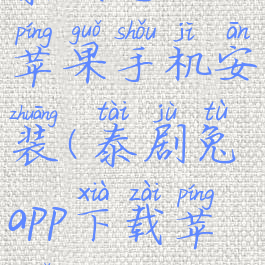 píng guǒ shǒu jī ān
苹果手机安
zhuāng tài jù tù
装(泰剧兔
xià zài píng
app下载苹